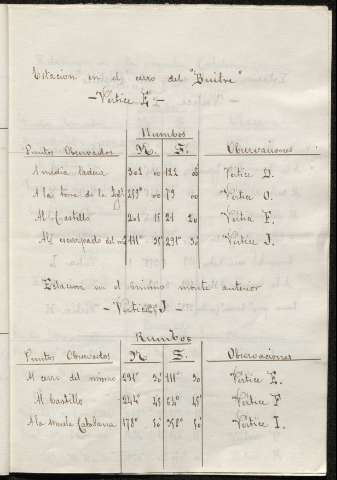 Estacion en el cerro del "Buitre"
- Vertice E -
Rumbos
Puntos Observados N. S. Observaciones
A media ladera 302 00 122 00 Vertice D.
A la torre de la Igla 259° 00 79 00 Vertice O.
Al Castillo 201 15 21 20 Vertice F.
Al escarpado del m 111° 35 291° 30 Vertice J.
Estacion en el mismo monte anterior
- Vertice J -
Rumbos
Puntos Observados N S. Observaciones
Al cerro del mismo 291° 30' 111° 30 Vertice E.
Al Castillo 244° 45 64° 45' Vertice F
A la muela Catalana 178° 50 358° 50' Vertice I.